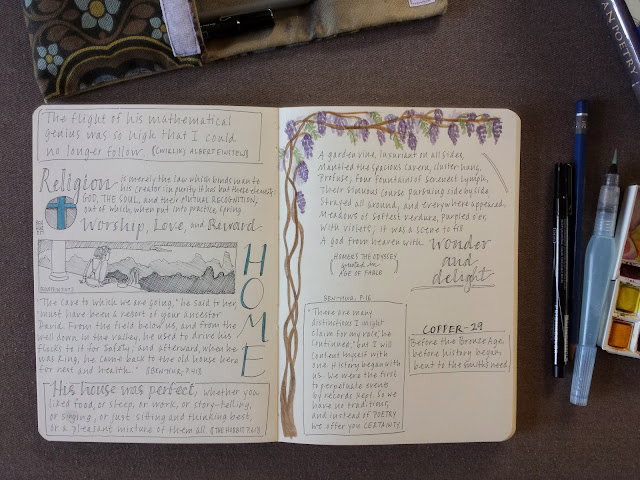 The flight of his mathematical
genius was so high that I could
no longer follow. ALBERT EINSTEIN
Religion is merely the law which binds man to
his creator: in purity it has but these elements:
GOD, THE SOUL, and their MUTUAL RECOGNITION;
out of which, when put into practise, spring
Worship, Love, and Reward.
HOME
"The cave to which we are going," he said to her,
"must have been a resort of your ancestor
David. From the field below us, and from the
well down in the valley, he used to drive his
flocks to it for safety; and afterward, when he
was King, he came back to the old house here
for rest and health."
His house was perfect, whether you
liked food, or sleep, or work, or story-telling,
or singing, or just sitting and thinking best,
or a pleasant mixture of them all. (THE HOBBIT
A garden vine, luxuriant on all sides,
Mantled the spacious cavern, cluster-hung,
Profuse; four fountains of serenest lymph,
Their sinuous course pursuing side by side,
Strayed all around, and everywhere appeared
Meadows of softest verdure, purpled o'er
With violets; it was a scene to fill
A god from heaven with wonder
and
delight
HOMER'S THE ODYSSEY
quoted in
AGE OF FABLE
BEN-HUR, P. 16
"There are many
distinctions I might
claim for my race," he
continued; "but I will
content myself with
one. History began with
us. We were the first
to perpetuate events
by records kept. So we
have no traditions;
and instead of POETRY
we offer you CERTAINTY.
COPPER-29
Before the Bronze Age,
before history began
bent to the smith's need,
POETRY